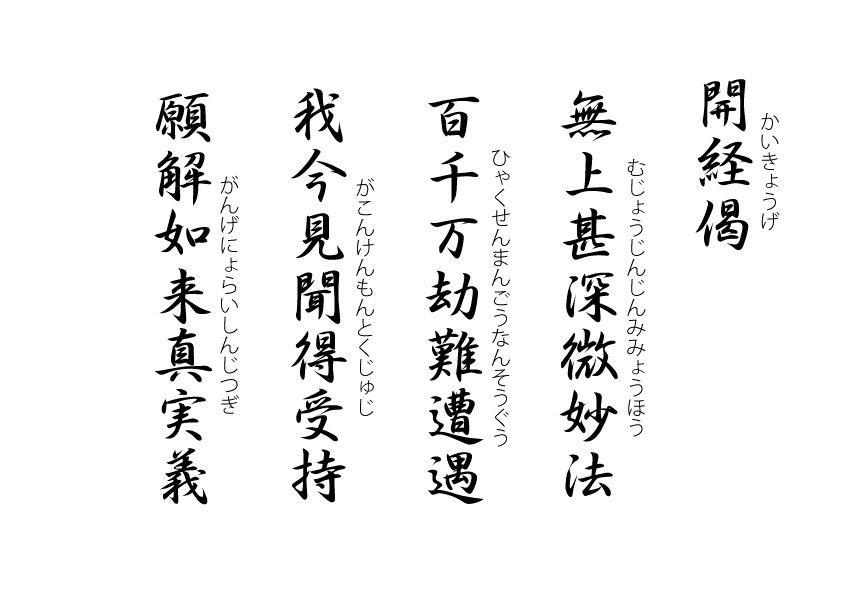 開経偈
かいきょうげ
無上甚深微妙法
むじょうじんじんみみょうほう
百千万劫難遭遇
ひゃくせんまんごうなんそうぐう
我今見聞得受持
がこんけんもんとくじゅじ
願解如来真実義
がんげにょらいしんじつぎ